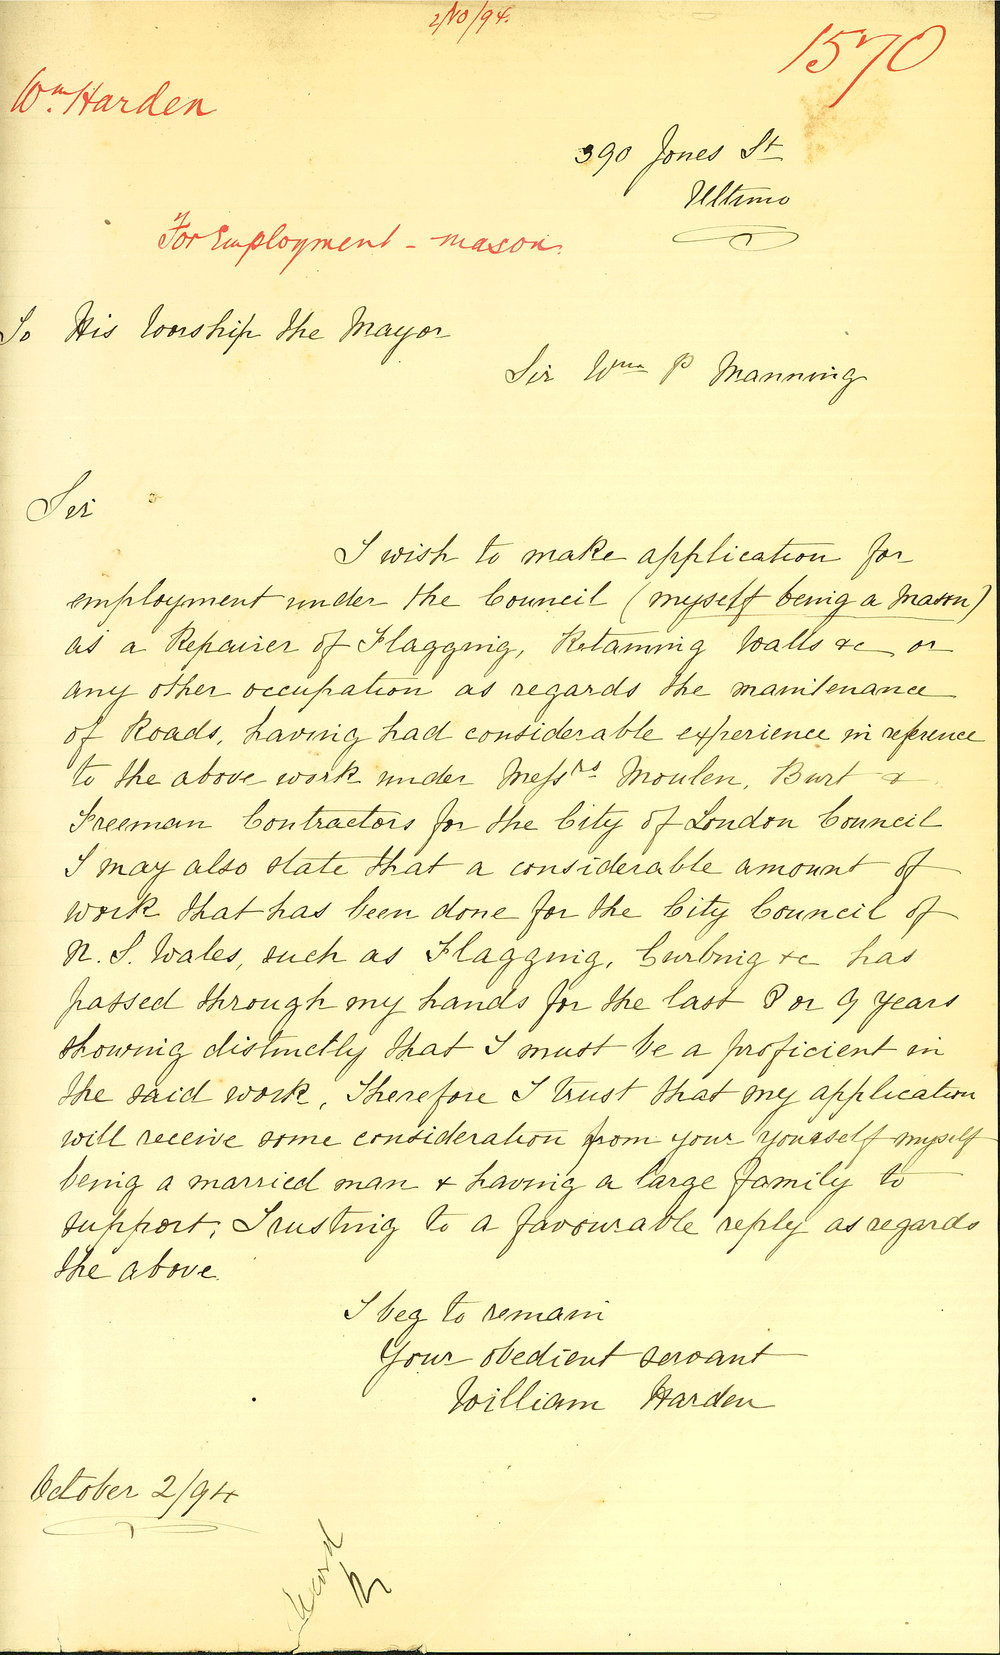 2/10/94.
1570
Wm. Harden
390 Jones St
Ultimo
For Employment - mason.
To His Worship the Mayor
Sir Wm P Manning
Sir
I wish to make application for
employment under the Council (myself being a Mason)
as a Repairer of Flagging, Retaining Walls &c or
any other occupation as regards the maintenance
of Roads, having had considerable experience in reference
to the above work under Messrs. Moulen, Burt &
Freeman Contractors for the City of London Council
I may also state that a considerable amount of
work that has been done for the City Council of
N. S. Wales, such as Flagging, Curbing &c has
passed through my hands for the last 8 or 9 years
showing distinctly that I must be a proficient in
the said work, Therefore I trust that my application
will receive some consideration from your yourself myself
being a married man & having a large family to
support, Trusting to a favourable reply as regards
the above.
I beg to remain
Your obedient servant
William Harden
October 2/94